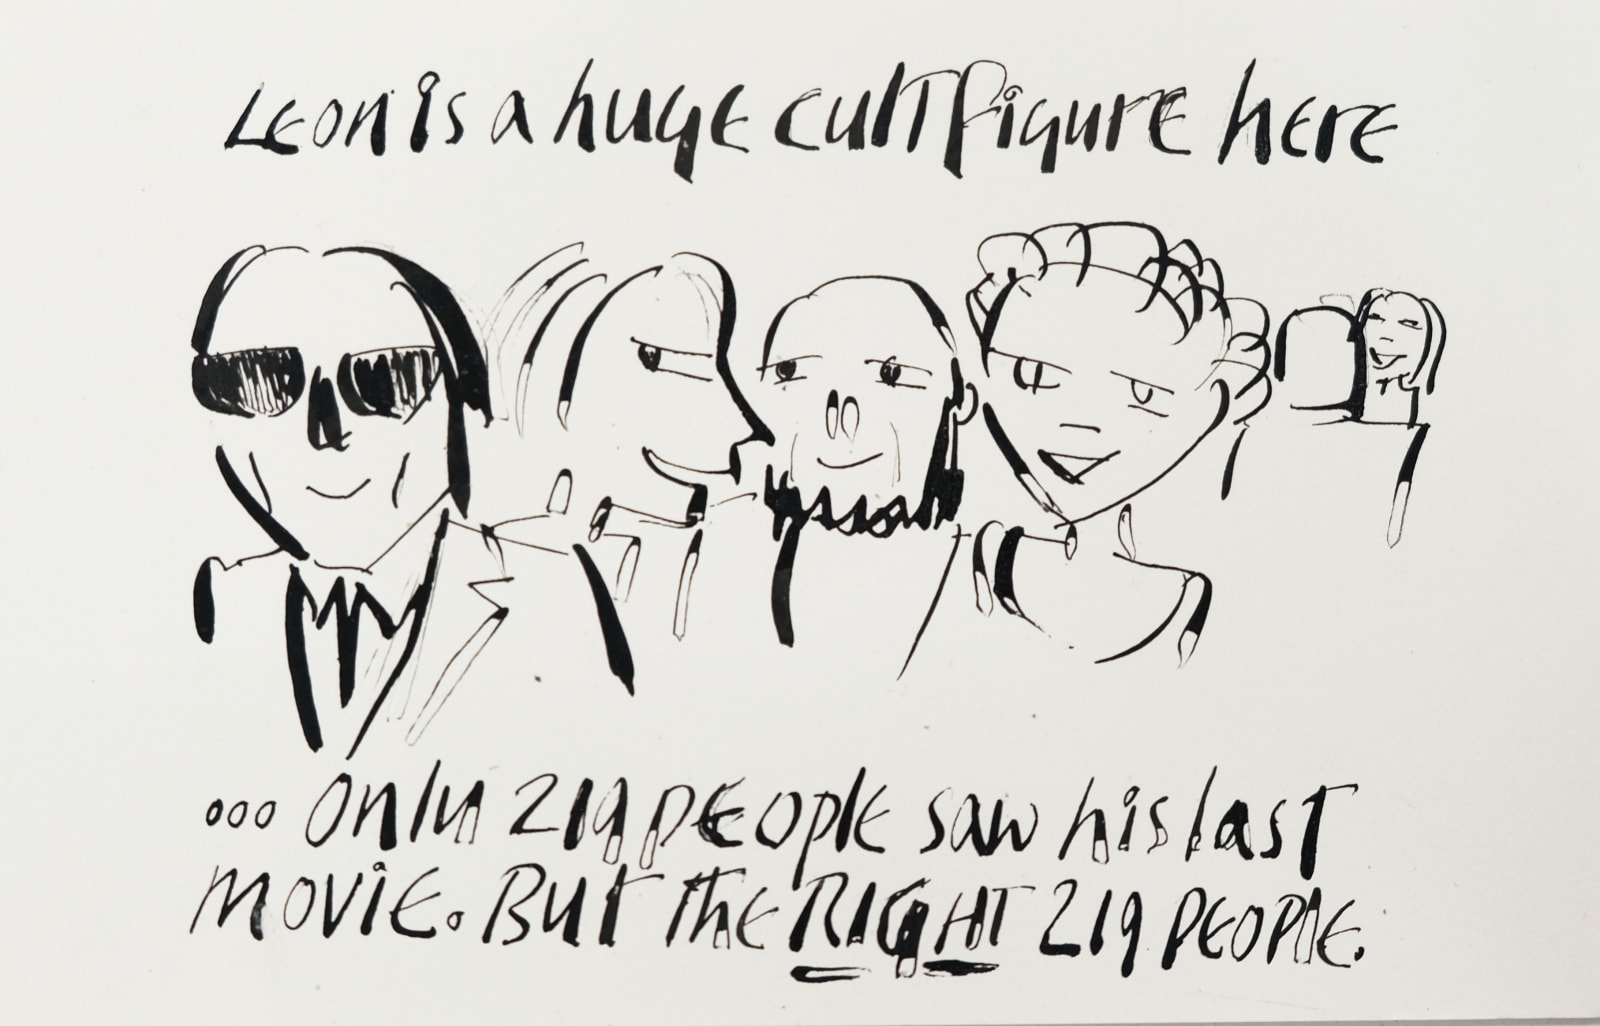 Leon is a huge cult figure here
... Only 219 people saw his last
movie. But the RIGHT 219 people.